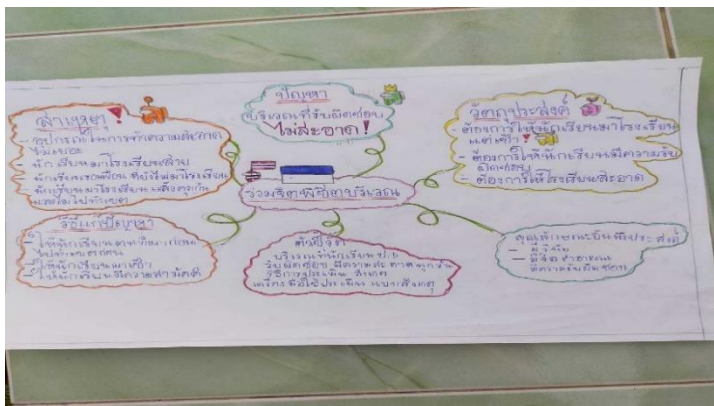 สาเหตุ!
- อุปกรณ์ในการทำความสะอาด
ไม่เพียงพอ
- นักเรียนมาโรงเรียนสาย
- นักเรียนมาโรงเรียนแล้วคุยกัน
ปัญหา
บริเวณที่รับผิดชอบ
ไม่สะอาด!
วัตถุประสงค์
- ต้องการให้นักเรียนมาโรงเรียน
แต่เช้า!
- ต้องการให้นักเรียนมีความรับ
ผิดชอบ
- ต้องการให้โรงเรียนสะอาด
ร่วมจิตพิชิตบริเวณ
วิธีแก้ปัญหา
ให้นักเรียนมาเช้า
ให้นักเรียนมีความสามัคคี
ตัวชี้วัด
บริเวณที่นักเรียน ป.๖
รับผิดชอบ มีความสะอาดทุกวัน
วิธีการประเมิน สังเกต
เครื่องมือใช้ประเมิน แบบสังเกต
คุณลักษณะอันพึงประสงค์
มีวินัย
มีจิตสาธารณะ
มีความรับผิดชอบ